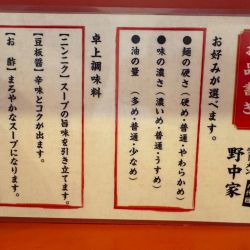 お品書き
野中家
お好みが選べます。
●麺の硬さ(硬め・普通・やわらかめ)
●味の濃さ(濃いめ・普通・うすめ)
●油の量(多め・普通・少なめ)
卓上調味料
【ニンニク】スープの旨味を引き立てます。
【豆板醤】辛味とコクが出ます。
【お 酢】まろやかなスープになります。